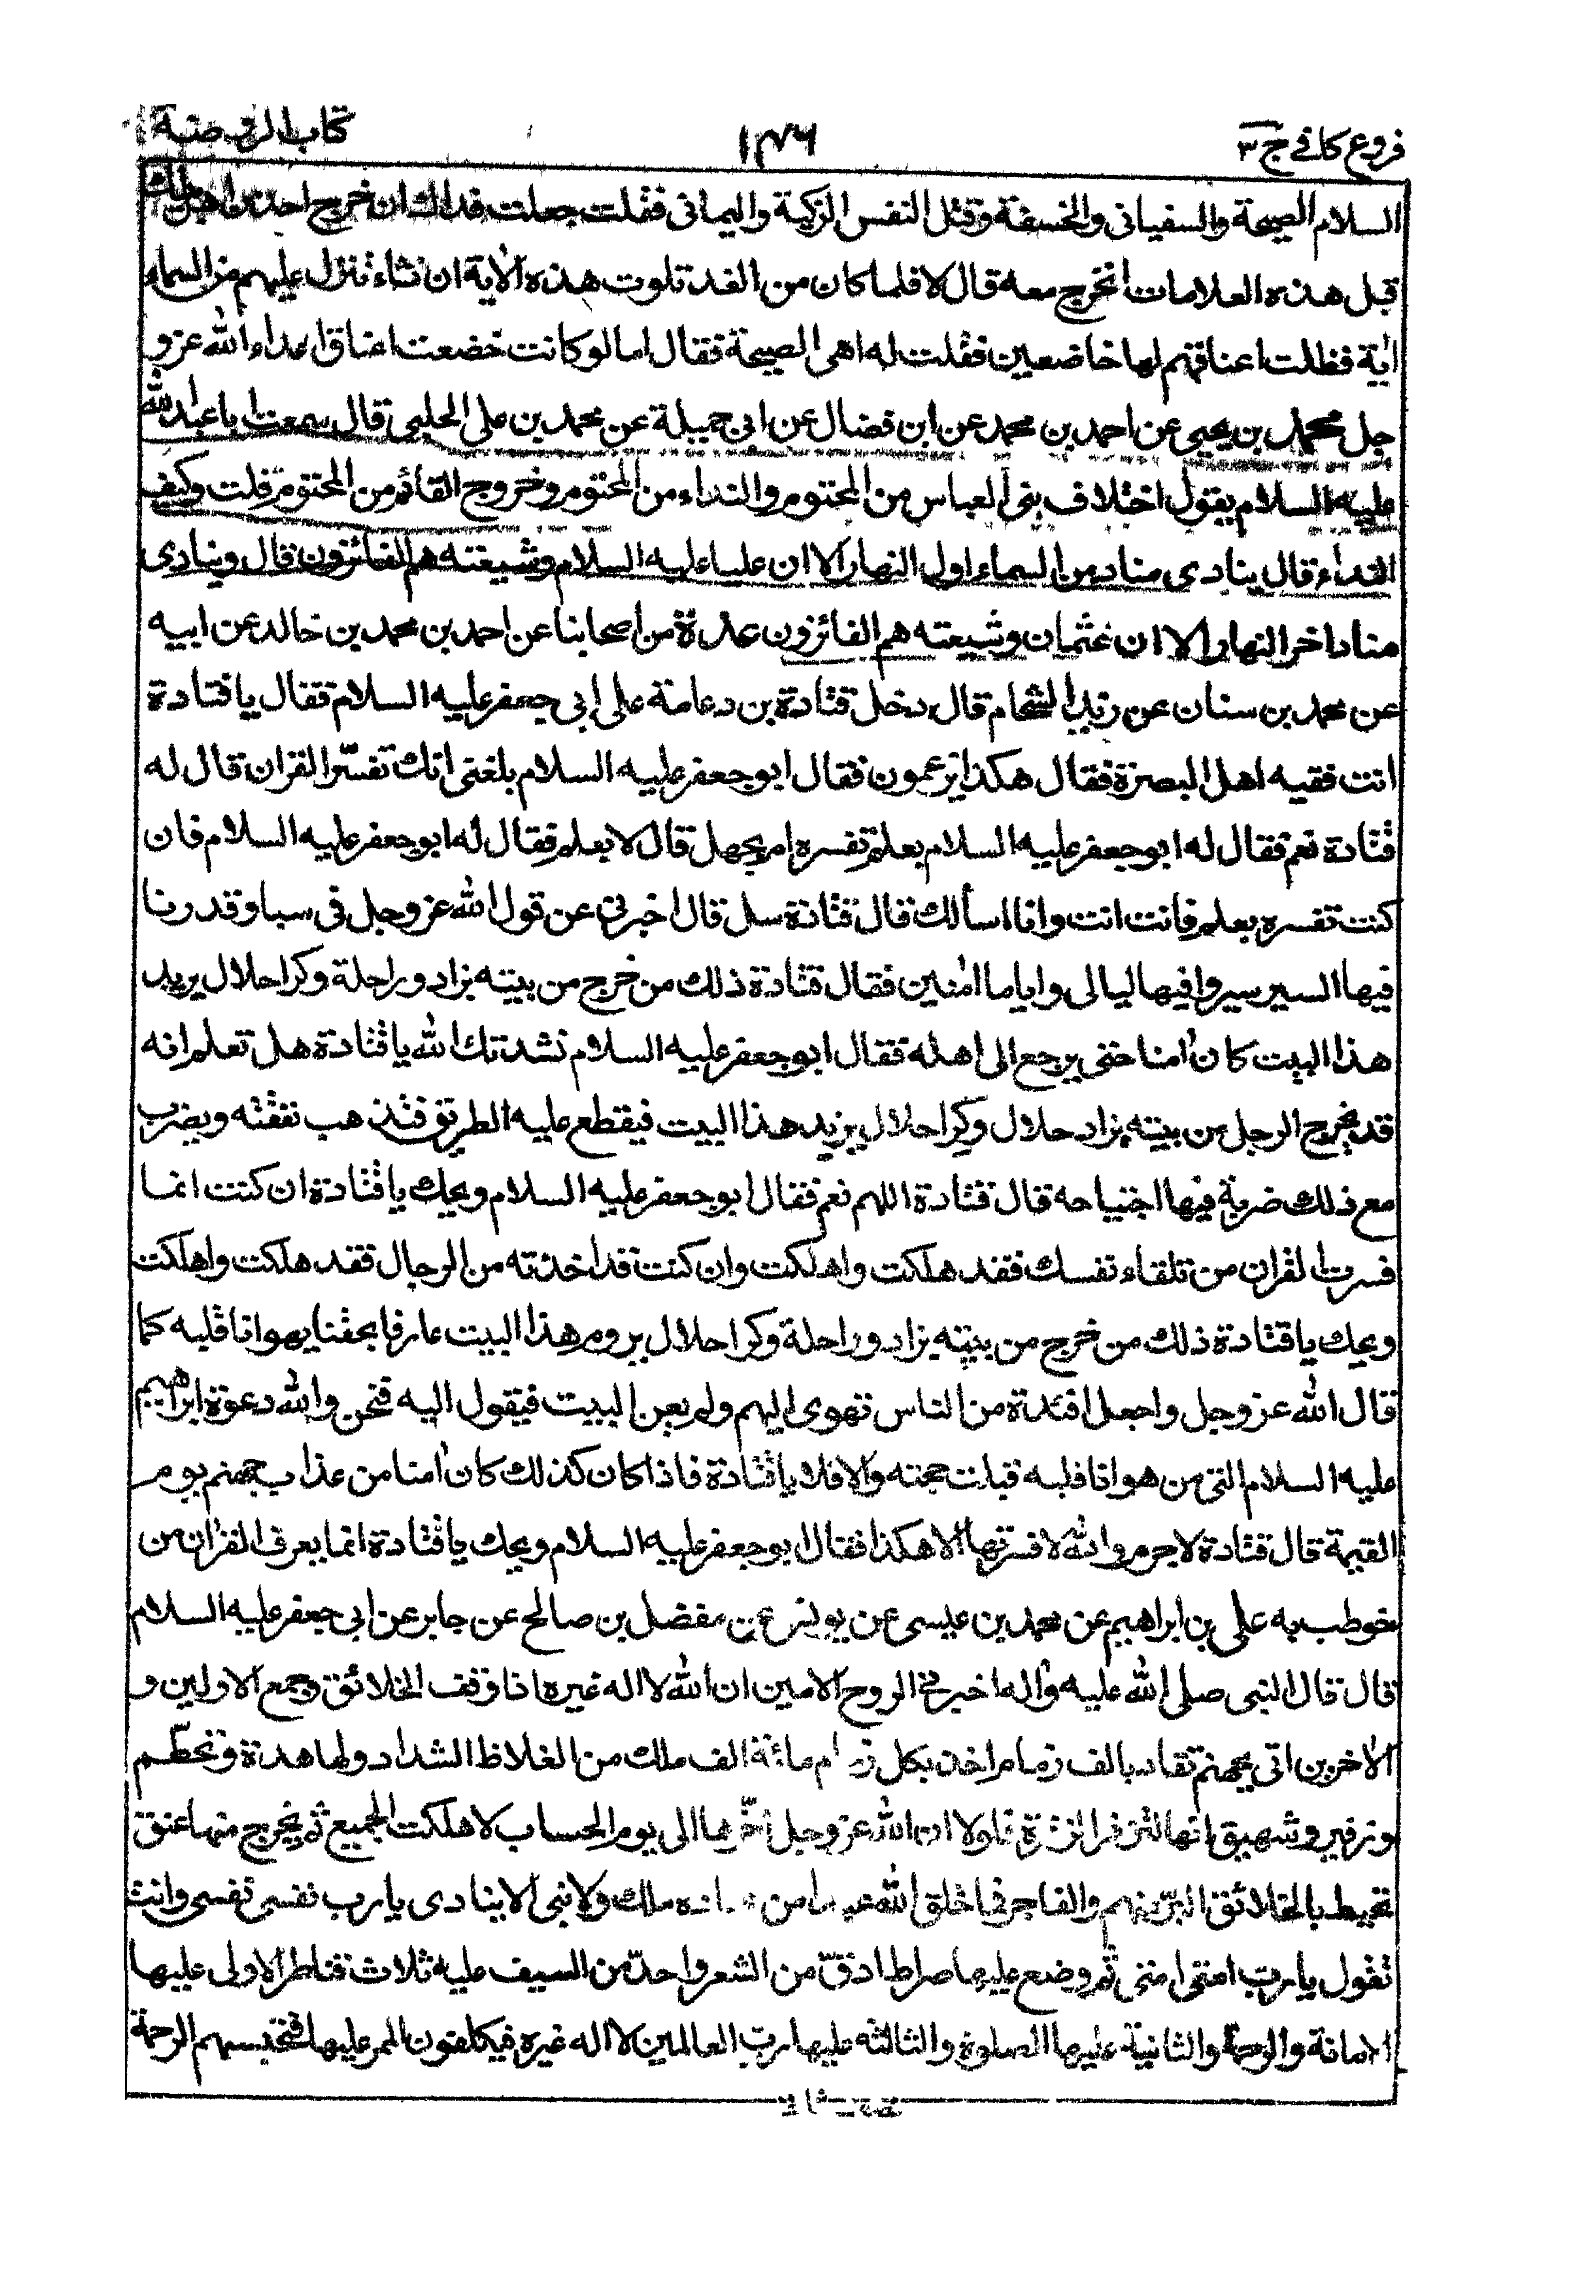 فروع کافے ج ۳
۱۴۶
کتاب الروضة
السلام الصيحة والسفياني والخسفة وقتل النفس الزكية واليماني فقلت جعلت فداك ان خرج احد من اهل بيتك
قبل هذه العلامات انخرج معه قال لا فلما كان من الغد تلوت هذه الاية ان نشاء ننزل عليهم من السماء
اية فظلت اعناقهم لها خاضعين فقلت له اهى الصيحة فقال اما لو كانت خضعت اعناق اعداء الله عزو
جل محمد بن يحيى عن احمد بن محمد عن ابن فضال عن ابي جميلة عن محمد بن على الحلبي قال سمعت ابا عبد الله
عليه السلام يقول اختلاف بنى العباس من المحتوم والنداء من المحتوم وخروج القائم من المحتوم قلت وكيف
النداء قال ينادى مناد من السماء اول النهار الا ان عليا عليه السلام وشيعته هم الفائزون قال وينادى
مناد اخر النهار الا ان عثمان وشيعته هم الفائزون عدة من اصحابنا عن احمد بن محمد بن خالد عن ابيه
عن محمد بن سنان عن زيد الشحام قال دخل قتادة بن دعامة على ابي جعفر عليه السلام فقال يا قتادة
انت فقيه اهل البصرة فقال هكذا يزعمون فقال ابو جعفر عليه السلام بلغنى انك تفسر القران قال له
قتادة نعم فقال له ابو جعفر عليه السلام بعلم تفسره ام بجهل قال لا بعلم فقال له ابو جعفر عليه السلام فان
كنت تفسره بعلم فانت انت وانا اسألك قال قتادة سل قال اخبرني عن قول الله عزوجل في سبا وقدرنا
فيها السير سيروا فيها ليالى واياما امنين فقال قتادة ذلك من خرج من بيته بزاد وراحلة وكرا حلال يريد
هذا البيت كان امنا حتى يرجع الى اهله فقال ابو جعفر عليه السلام نشدتك الله يا قتادة هل تعلم انه
قد يخرج الرجل من بيته بزاد حلال وكرا حلال يريد هذا البيت فيقطع عليه الطريق فتذهب نفقته ويضرب
مع ذلك ضربة فيها اجتياحه قال قتادة اللهم نعم فقال ابو جعفر عليه السلام ويحك يا قتادة ان كنت انما
فسرت القران من تلقاء نفسك فقد هلكت واهلكت وان كنت قد اخذته من الرجال فقد هلكت واهلكت
ويحك يا قتادة ذلك من خرج من بيته بزاد وراحلة وكرا حلال يروم هذا البيت عارفا بحقنا يهوانا قلبه كما
قال الله عزوجل واجعل افئدة من الناس تهوى اليهم ولم يعن البيت فيقول اليه فنحن والله دعوة ابراهيم
عليه السلام التى من هوانا قلبه قبلت حجته والا فلا يا قتادة فاذا كان كذلك كان امنا من عذاب جهنم يوم
القيمة قال قتادة لا جرم والله لا فسرتها الا هكذا فقال ابو جعفر عليه السلام ويحك يا قتادة انما يعرف القران من
خوطب به على بن ابراهيم عن محمد بن عيسى عن يونس عن مفضل بن صالح عن جابر عن ابي جعفر عليه السلام
قال قال النبى صلى الله عليه واله اخبرني الروح الامين ان الله لا اله غيره اذا وقف الخلائق وجمع الاولين و
الاخرين اتى بجهنم تقاد بالف زمام اخذ بكل زمام مائة الف ملك من الغلاظ الشداد ولها هدة وتحطم
وزفير وشهيق انها لتزفر الزفرة فلولا ان الله عزوجل اخرها الى يوم الحساب لاهلكت الجميع ثم يخرج منها عنق
تحيط بالخلائق البر منهم والفاجر فما خلق الله عبدا من عباده ملك ولا نبى الا ينادى يا رب نفسى نفسى وانت
تقول يا رب امتى امتى ثم وضع عليها صراط ادق من الشعر واحد من السيف عليه ثلاث قناطر الاولى عليها
الامانة والرحمة والثانية عليها الصلوة والثالثة عليها رب العالمين لا اله غيره فيكلفون الممر عليها فتحبسهم الرحمة